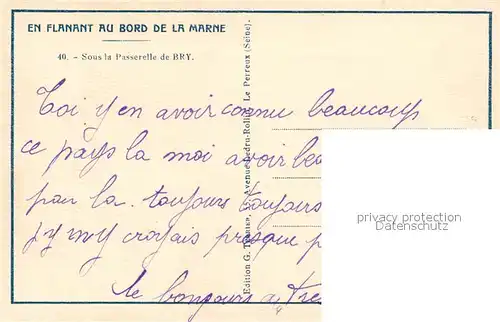 EN FLANANT AU BORD DE LA MARNE
40. - Sous la Passerelle de BRY.
Toi y en avoir connu beaucoup
ce pays la moi avoir
par la. toujours toujours
j'y croyais presque
le bonjours a
Edition G. Avenue Ledru-Rollin, Le Perreux (Seine).
privacy protection
Datenschutz